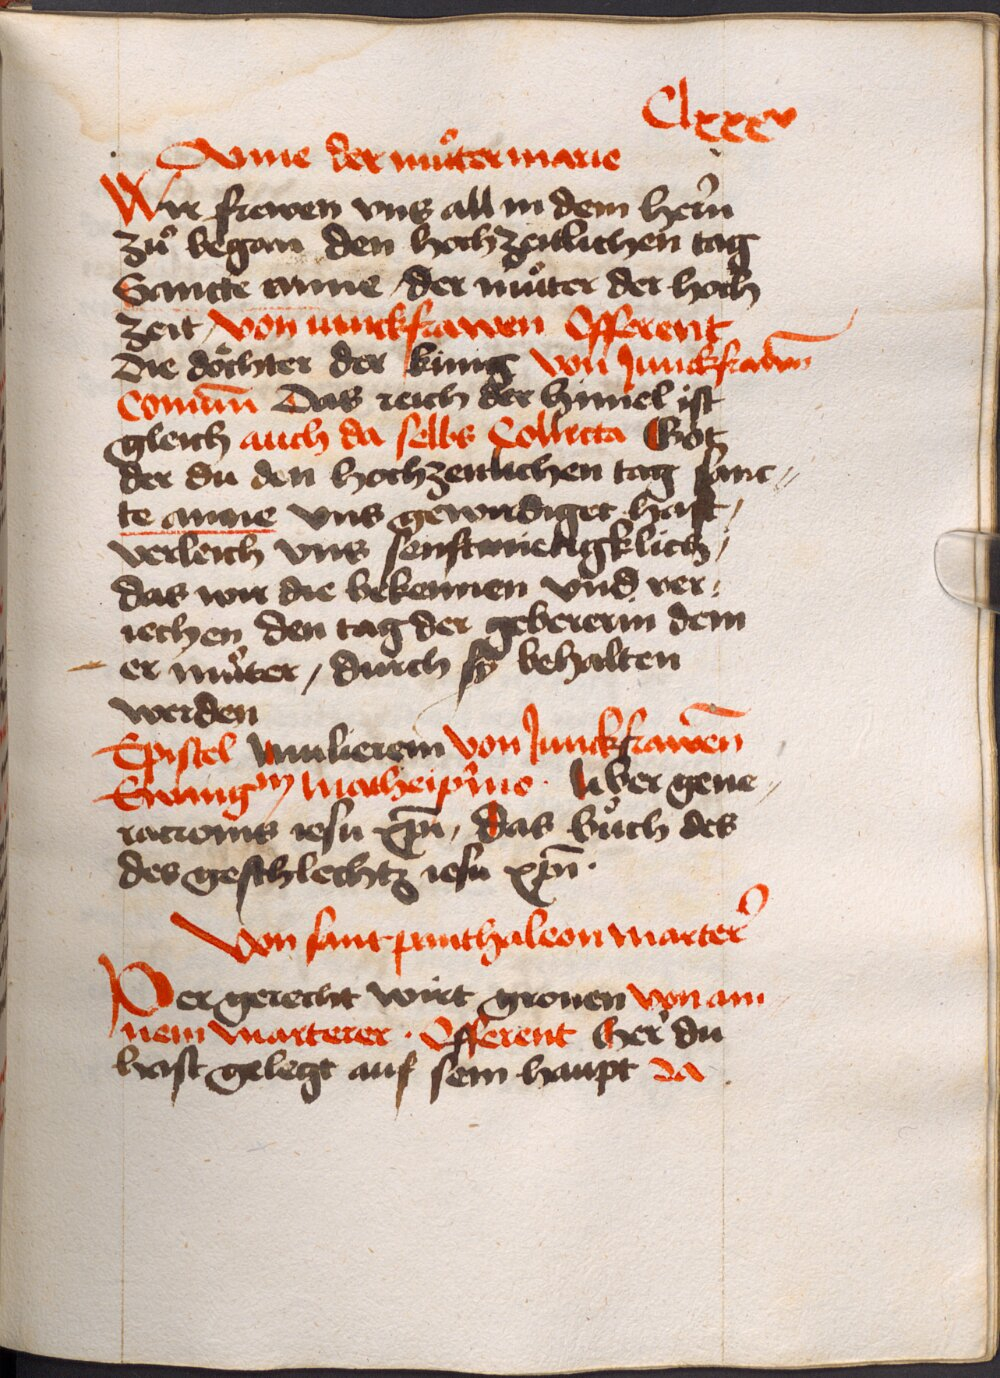 Clxxxv
Anne der můter marie
Wir frewen vns all in dem herrn
zů began den hochzeitlichen tag
Sancte anne / der můter der hoch
zeit / von iunckfrawen Offerent
Die döchter der künig von Junckfrawen
Comun Das reich der himel ist
gleich auch da selbs Collecta Got
der du den hochzeitlichen tag sanc //
te anne vns gewirdiget hast /
verleich vns senftmietigklich /
das wir die bekennen vnd ver /
iechen den tag der gebererin dein
er můter / durch sy behalten
werden
Epistel Mulierem von Junckfrawen
Ewangm Mathei primo . liber gene //
rationis iesu xpi / das bůch des
des geschlechtz iesu xpi .
Von sant panthaleon marter
Der gerecht wirt gronen von ain
nem marterer . Offerent her du
hast gelegt auf sein haupt da